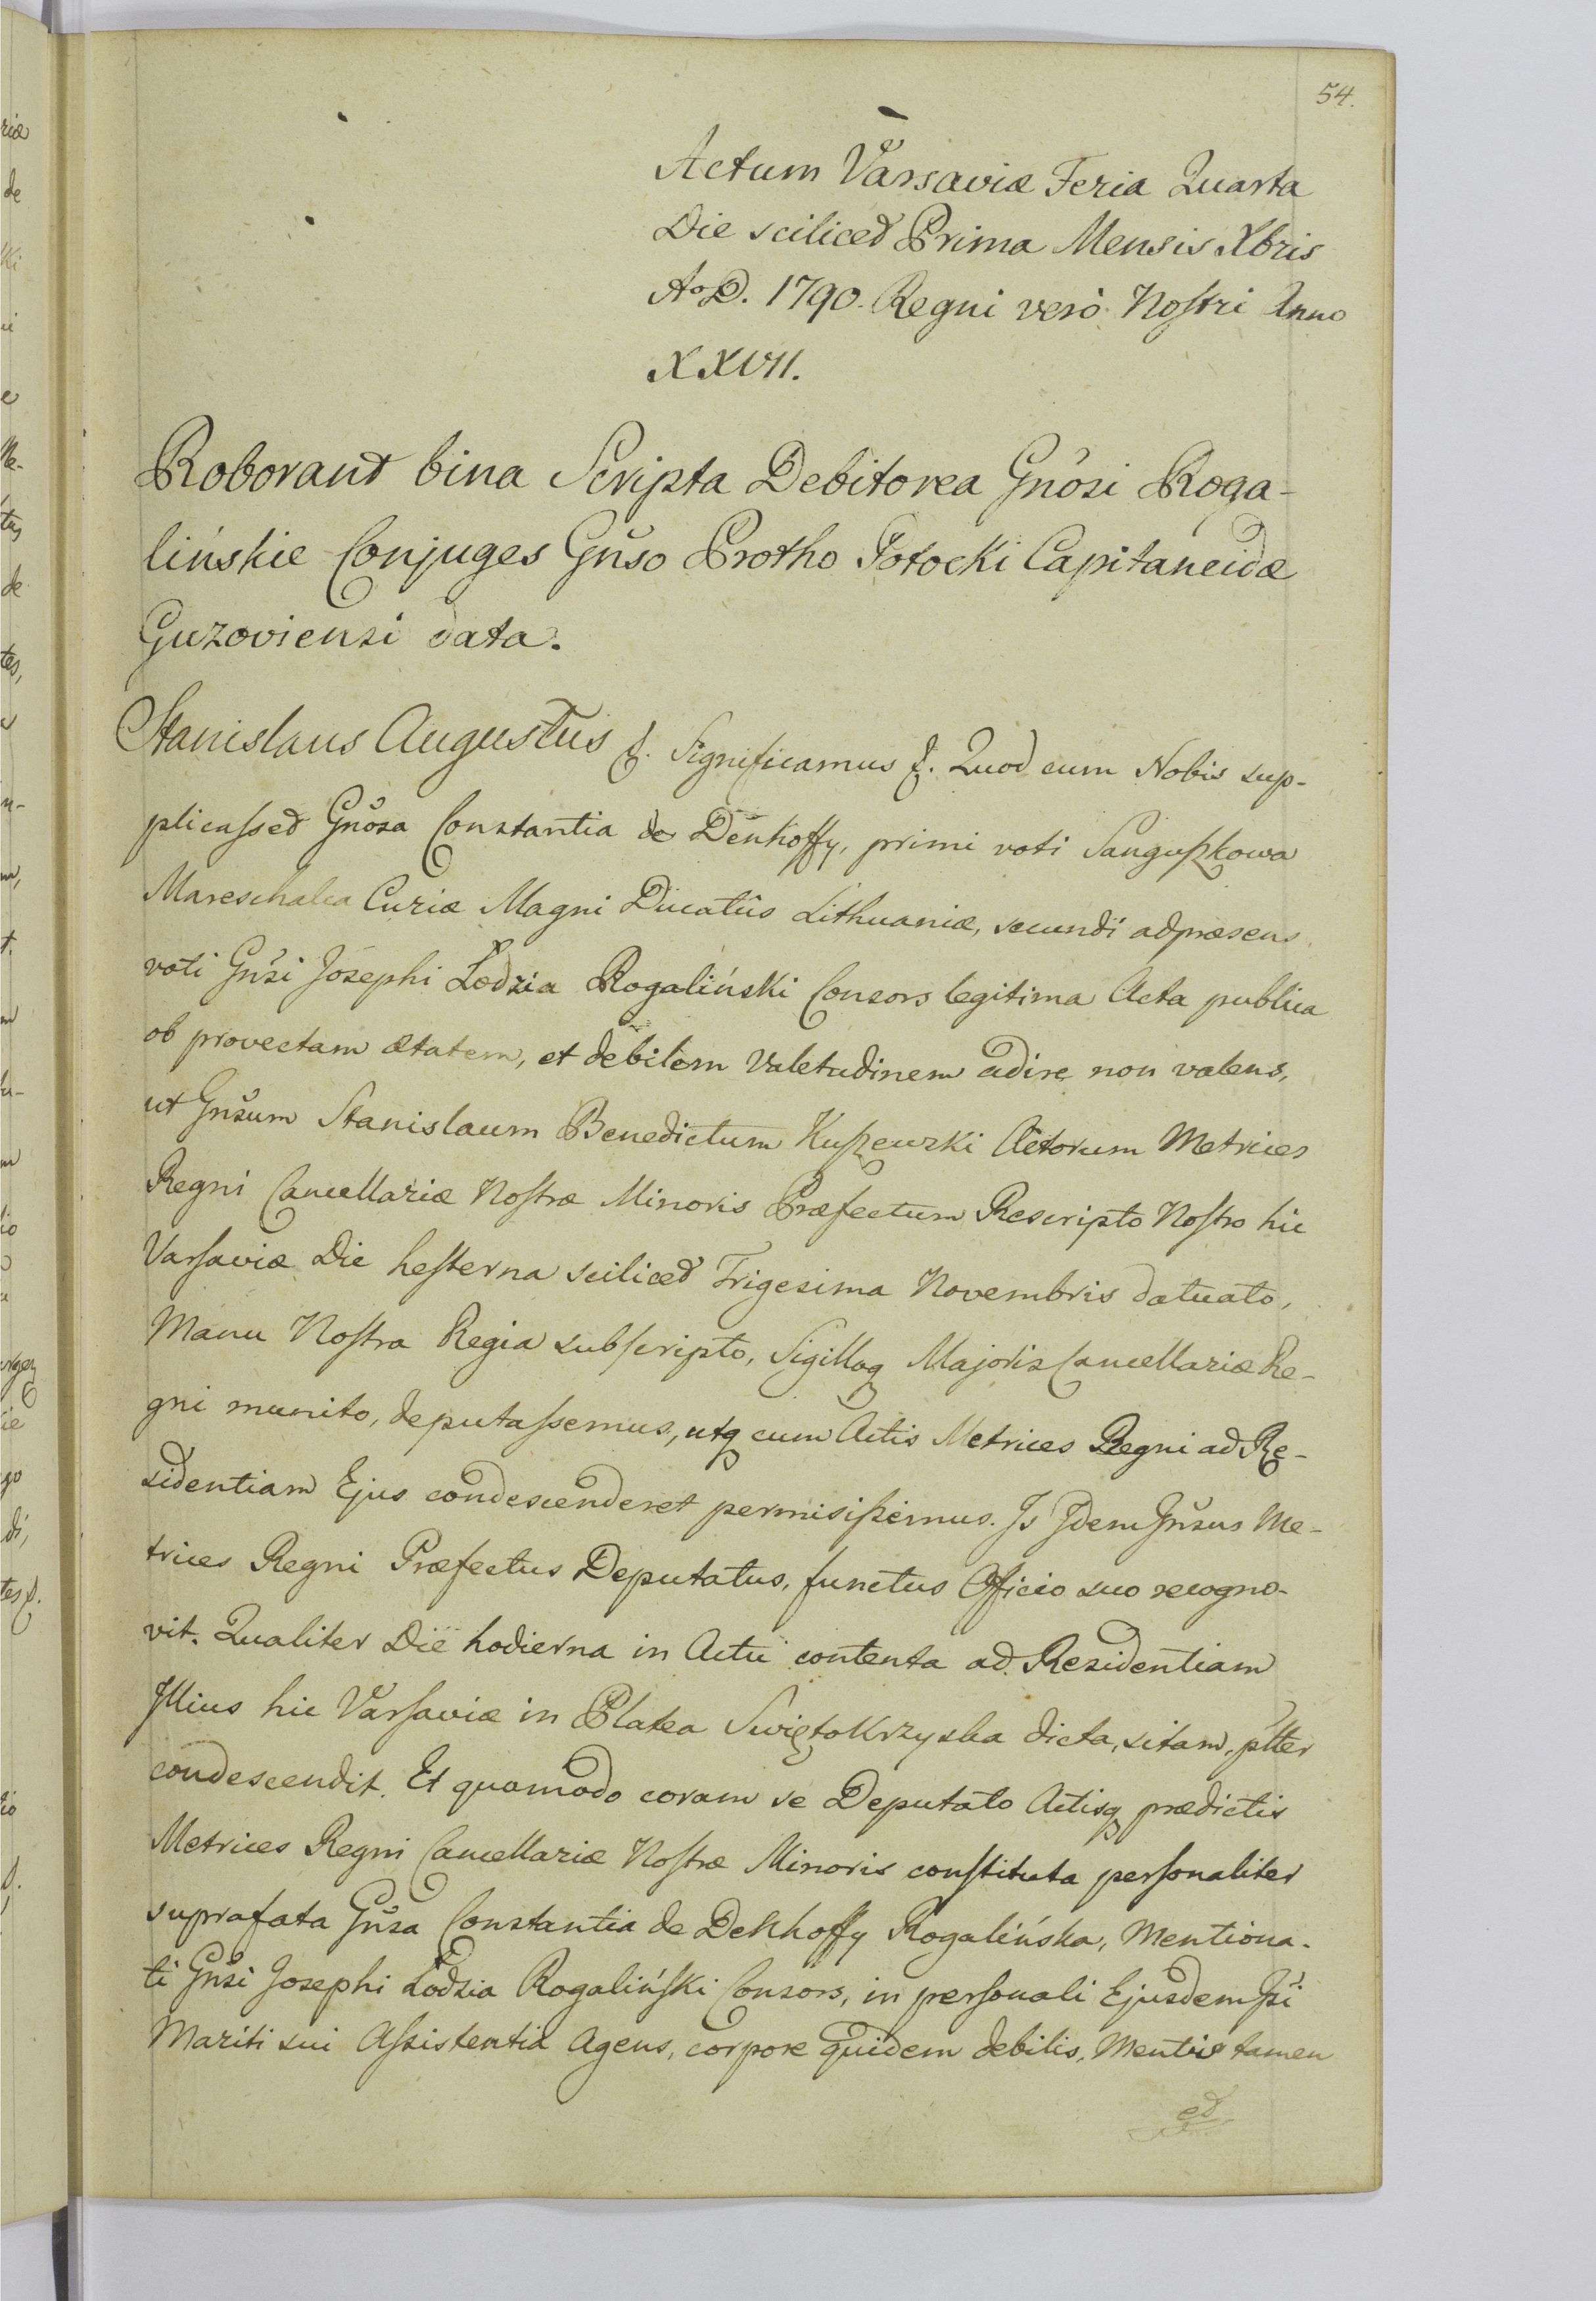 54.
Actum Varsaviæ Feria Quarta
Die scilicet Prima Mensis Xbris
AoD. 1790. Regni verò Nostri Anno
XXVII.
Roborant bina Scripta Debitorea Gnosi Roga-
lińskie Conjuges Gnso Protho Potocki Capitaneidæ
Guzoviensi data.
Stanislaus Augustus &. Significamus &. Quod cum Nobis sup-
plicasset Gnosa Constantia de Denhoffy, primi voti Sanguszkowa
Mareschalca Curiæ Magni Ducatûs Lithuaniæ, secundi adpræsens
voti Gnsi Josephi Lodzia Rogaliński Consors legitima Acta publica
ob provectam ætatem, et debilem valetudinem adire non valens,
ut Gnsum Stanislaum Benedictum Kuszewski Actorum Metrices
Regni Cancellariæ Nostræ Minoris Præfectum Rescripto Nostro hic
Varsaviæ Die hesterna scilicet Trigesima Novembris datuato,
Manu Nostra Regia subscripto, Sigilloq Majoris Cancellariæ Re-
gni munito, deputassemus, utq cum Actis Metrices Regni ad Re-
sidentiam Ejus condescenderet permisissemus. Is Idem Gnsus Me-
trices Regni Præfectus Deputatus, functus Officio suo recogno-
vit. Qualiter Die hodierna in Actu contenta ad Residentiam
Illius hic Varsaviæ in Platea Swiętokrzyska dicta, sitam, pltter
condescendit. Et quomodo coram se Deputato Actisq prædictis
Metrices Regni Cancellariæ Nostræ Minoris constituta personaliter
suprafata Gnsa Constantia de Dekhoffy Rogalińska, Mentiona-
ti Gnsi Josephi Lodzia Rogaliński Consors, in personali Ejusdem Gsi
Mariti sui Assistentia Agens, corpore quidem debilis, Mentis tamen
et